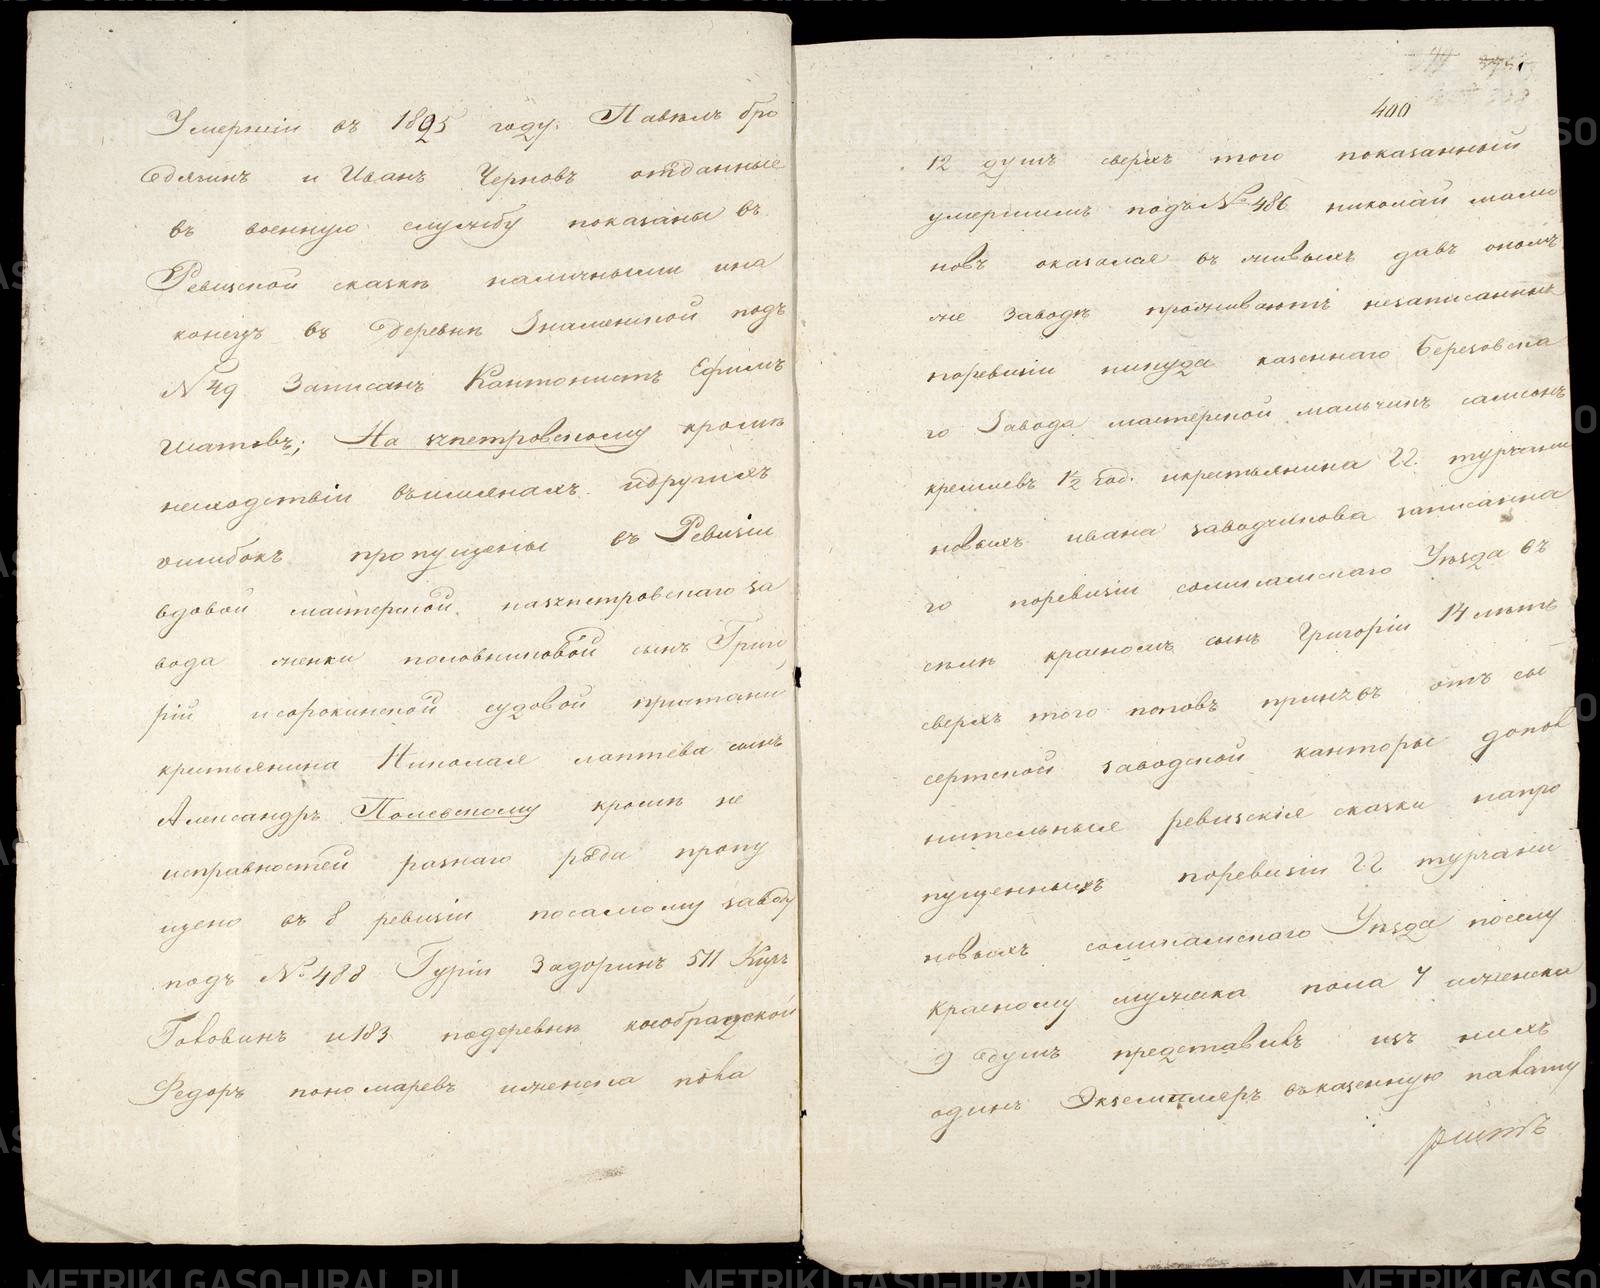 Умершiи въ 1825 году. Павелъ бро
дягинъ и Иванъ Черновъ отданные
въ военную службу показаны въ
Ревизской сказкѣ наличными ина
конецъ въ деревнѣ Знаменской подъ
№ 49 Записанъ Кантонистъ Ефимъ
Шатовъ; На зпетровскому кромѣ
несходствiи въимянахъ идругихъ
ошибокъ пропущены въ Ревизiи
вдовой мастерской назпетровскаго за
вода женки половниковой сынъ Григо
рiй исорокинской судовой пристани
крестьянина Николая лаптева сынъ
Александръ Полевскому кромѣ не
исправностей разнаго рода пропу
щено въ 8 ревизiи посамому заводу
подъ № 488 Гурiи Задоринъ 511 Кузъ
Говоринъ и183 подеревнѣ кособродской
Федоръ пономаревъ иженска пола
400
12 душъ сверхъ того показанный
умершимъ подъ № 486 николай мамо
новъ оказался въ живыхъ давъ ономъ
же Заводѣ проживаютъ незаписанные
поревизiи никуда казеннаго Березовска
го Завода мастерской мальчикъ самсонъ
кремлевъ 1½ год. икрестьянина 22. турчани
новыхъ ивана заводчикова записанна
го поревизiи соликамскаго Уѣзда въ
селѣ красномъ сынъ Григорiи 14 лѣтъ
сверхъ того поповъ принявъ отъ сы
сертской заводской канторы допол
нительныя ревизскiя сказки напро
пущенныхъ поревизiи 22 турчани
новыхъ соликамскаго Уѣзда поселу
красному мужска пола 7 иженска
9 душъ представивъ изъ нихъ
одинъ Экземпляръ въказенную палату
METRIKI.GASO-URAL.RU